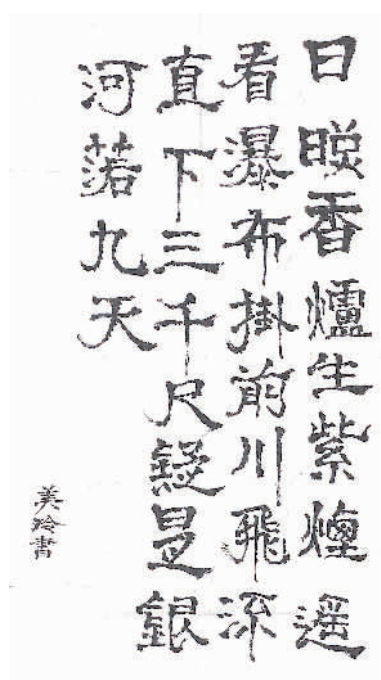 日照香爐生紫煙遙
看瀑布掛前川飛流
直下三千尺疑是銀
河落九天
美玲書